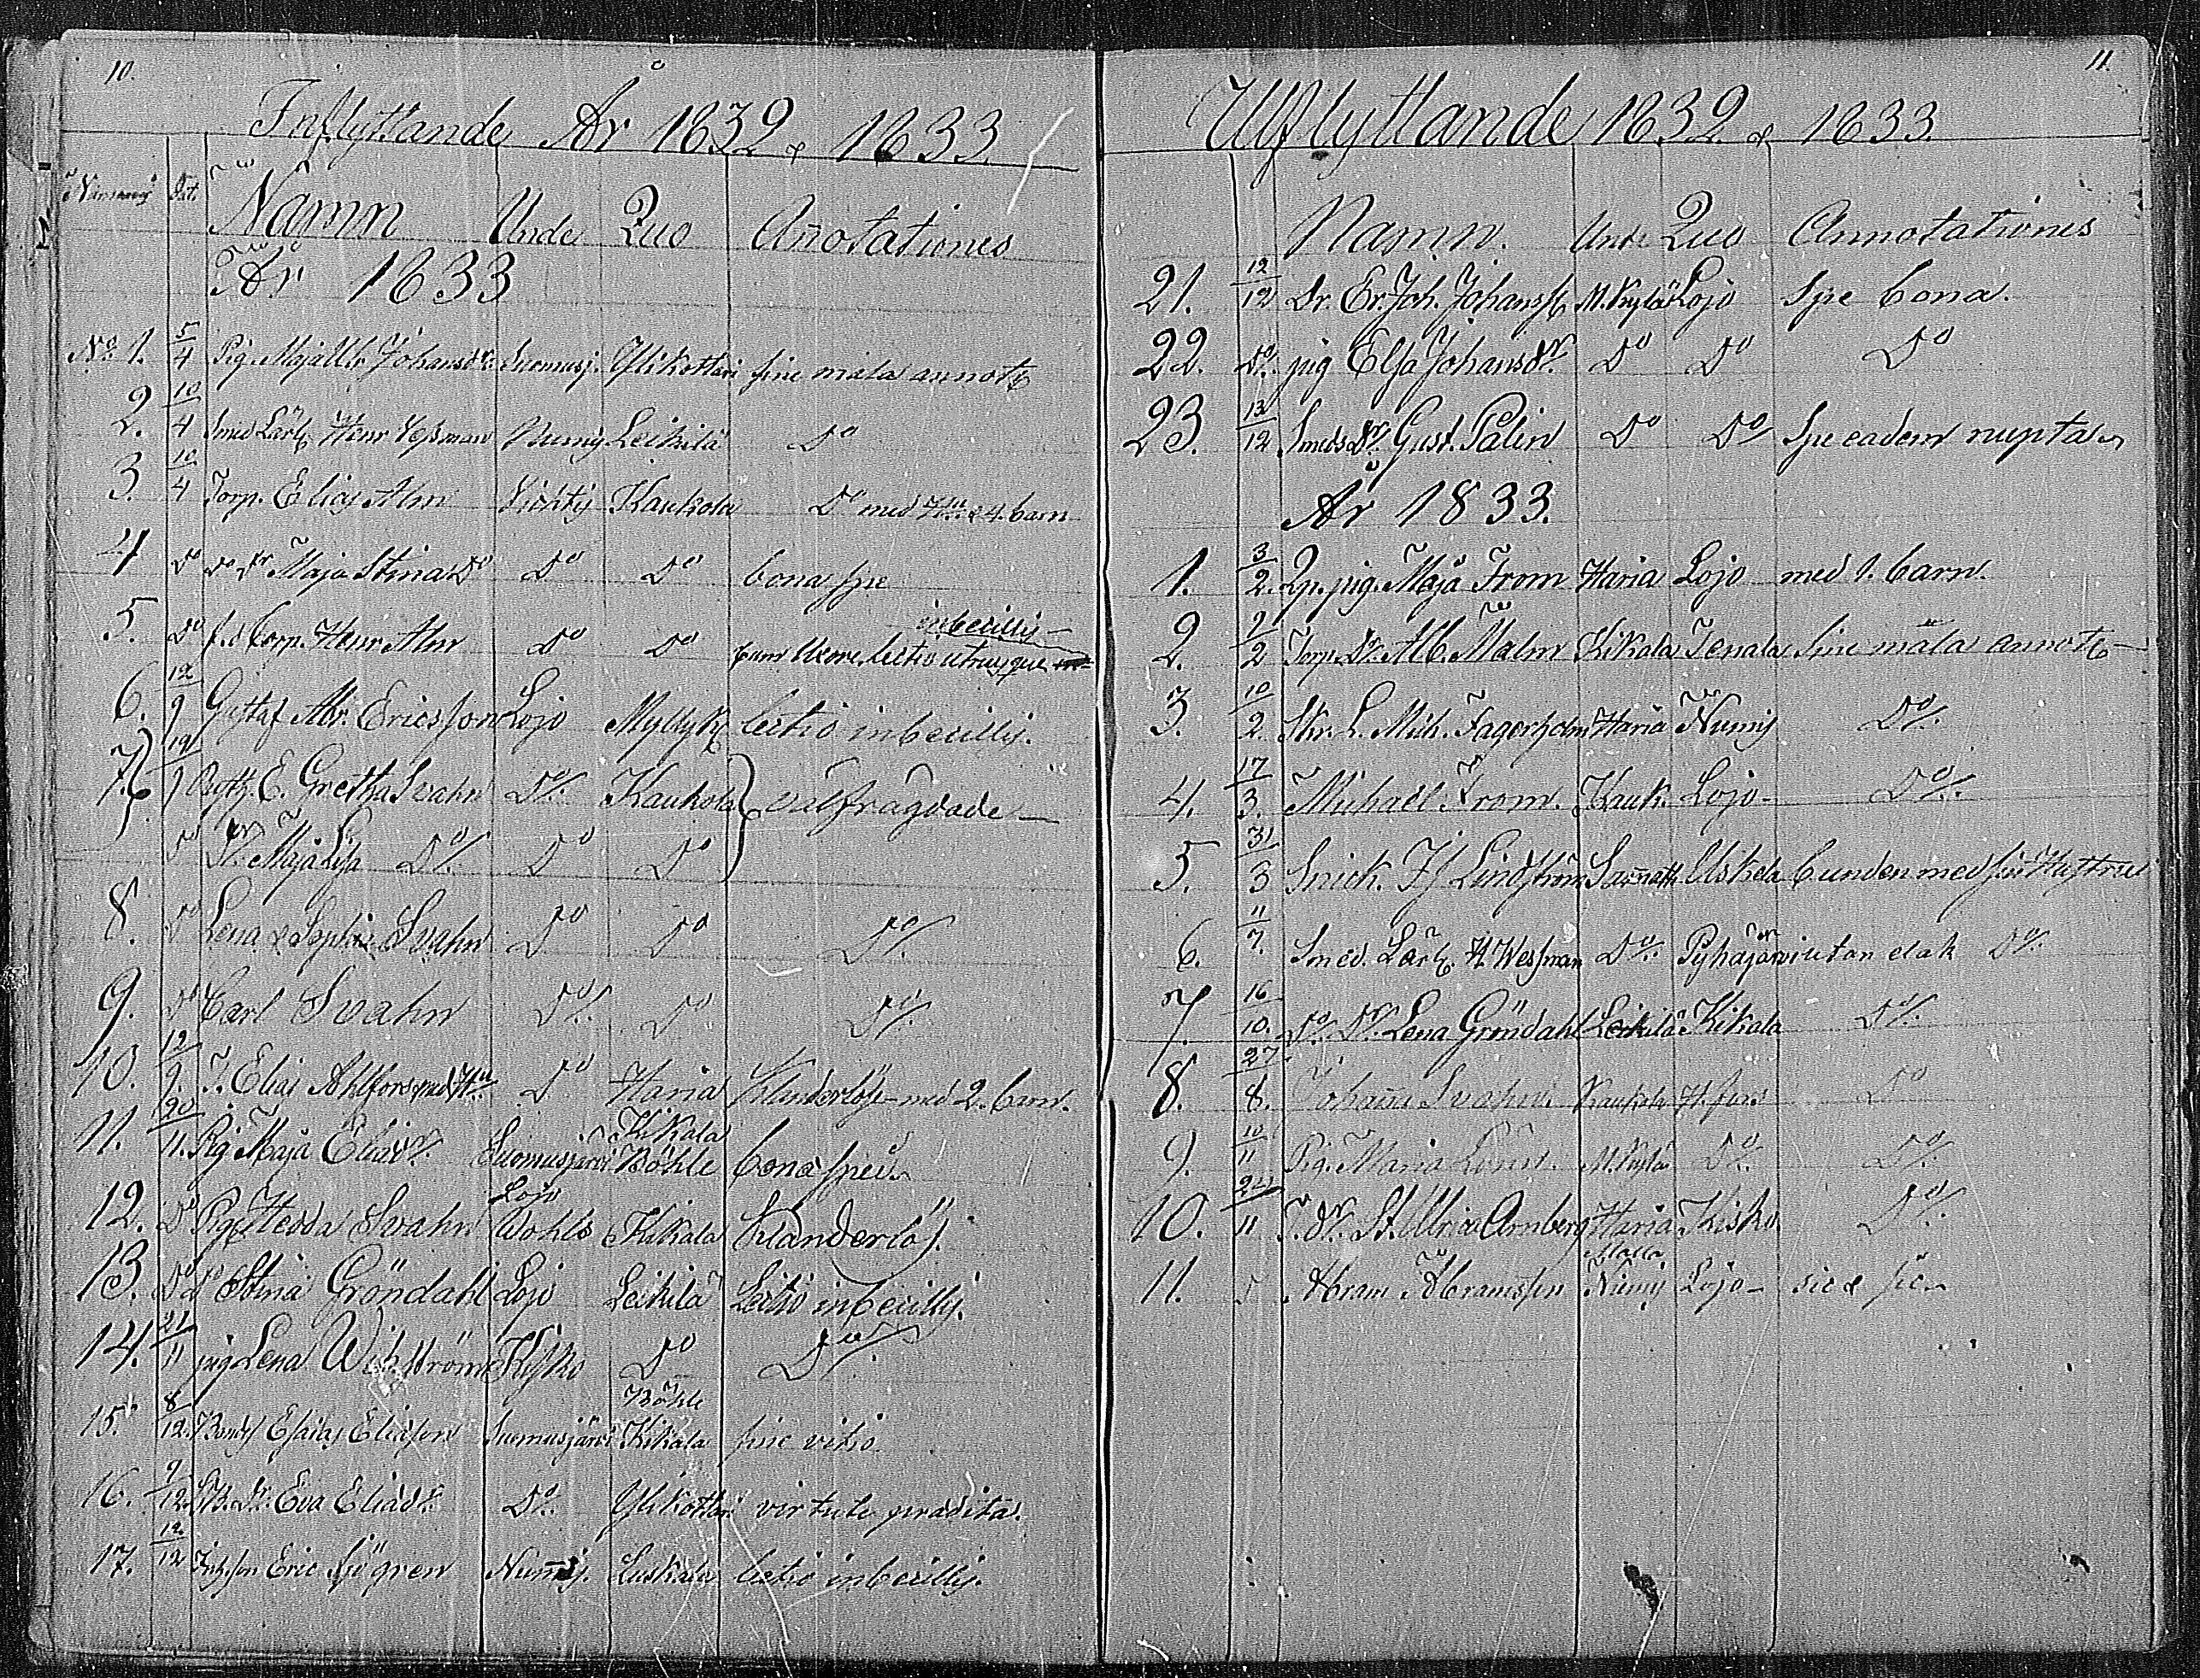 10.
Inflyttande År 1832 & 1833.
Dat. Namn Unde Quo Annotationes
År 1833
No 1. 5/4 Pig. Maja Ulr. Johansdr. Suomusj. Ylikottari sine mala annot.
2. 10/4 Smed Lärl. Henr Wessman Numij Leikilä Do
3. 10/4 Torp. Elias Alm Vichtij Kaukola Do med Hu. & 4. barn
4 Do Do Dr Maja Stina Do Do Do bona spe
5. Do f.d. Corp. Henr Alm Do Do cum uxore, lectio utriusque inbecillis
6. 12/9 Gustaf Abr. Ericsson Lojo Myllyk. lectio inbecillis.
7. E. Gretha Svahn Do Kaukola välfrägdade
Do Dr. Maja Lisa Do Do Do
8. Do Lena & Sophia Svahn Do Do Do
9. Do Carl Svahn Do Do Do
10. 12/9. T. Elias Ahlfors med Hu. Do Haria Klanderlös med 2. barn.
11. 20/11. Pig Maja Eliædr. Suomusjärvi Kikala Böhle bona spei
12. Do Pig Hedda Svahn Lojo Wohls Kikala klanderlös.
13. Do Do Stina Gröndahl Lojo Leikilä Lectio inbecillis.
14. 21/11 pig Lena Wikström Kisko Do Do
15. 8/12. Bonds. Esaias Eliasson Suomusjärvi Böhle Kikala sine vitio.
16. 9/12. B. Dr. Eva Eliædr. Do Ylikottari virtute prædita.
17. 12/12 Eric Sjögren Numij. Luskala lectio inbecillis.
11.
Utflyttande 1832. & 1833.
Namn. Unde Quo Annotationes
21. 12/12 Dr. Er. Joh. Johanss. M. Kylä Lojo Spe bona.
22. Do pig Elsa Johansdr. Do Do Do
23. 13/12 Smeds Dr. Gust. Palin Do Do Spe eadem nupta
År 1833.
1. 3/2. Qp. pig. Maja From Haria Lojo med 1. barn.
2. 9/2 Torp. Dr. Alb. Malm Kikala Tenala Sine mala annot.
3. 10/2. Skr. L. Mich. Fagerholm Haria Numij Do
4. 17/3. Michael From. Kauk. Lojo Do
5. 31/3 Snick. Lindström Sarnatt Uskela bunden med sin Hustru
6. 11/7. Smed. Lärl. H. Wessman Do Pyhäjärvi utan elak Do
7. 16/10. Do Dr. Lena Gröndahl Leikilä Kikala Do
8. 27/8. Johan Svahn. Kaukola H. fors Do
9. 10/11 Pig. Maria Lönn. M. Kylä Do Do
10. 24/11 T. Dr. St. Ulrica Arnberg Haria Kisko Do
11. Abram Abramsson Numij Lojo sic & sic